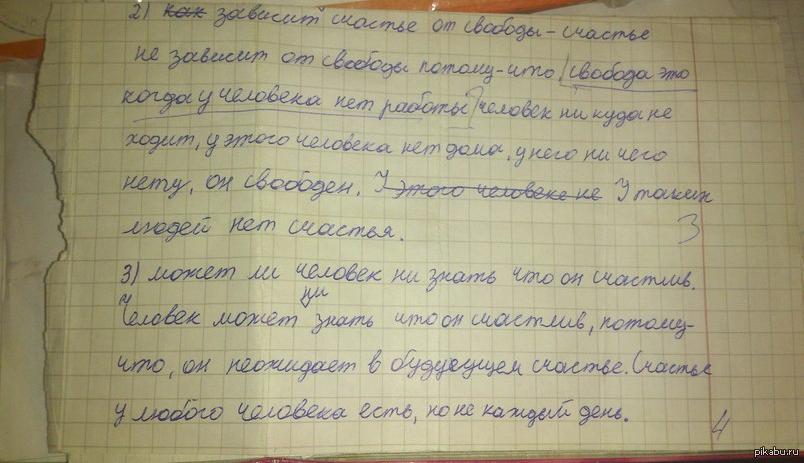 2) как зависит счастье от свободы - счастье
не зависит от свободы потому-что свобода это
когда у человека нет работы человек ни куда не
ходит, у этого человека нет дома, у него ни чего
нету, он свободен. У этого человека не У таких
людей нет счастья.
3
3) может ли человек ни знать что он счастлив.
Человек может ни знать что он счастлив, потому-
что, он неожидает в будующем счастье. Счастье
у любого человека есть, но не каждый день.
4
pikabu.ru